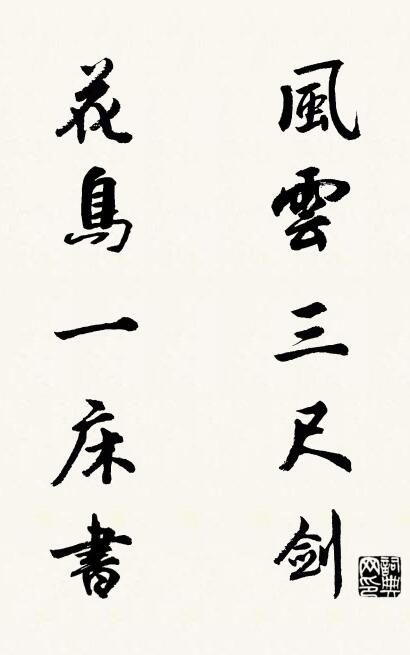 風雲三尺剑
花鳥一床書
詞典网印